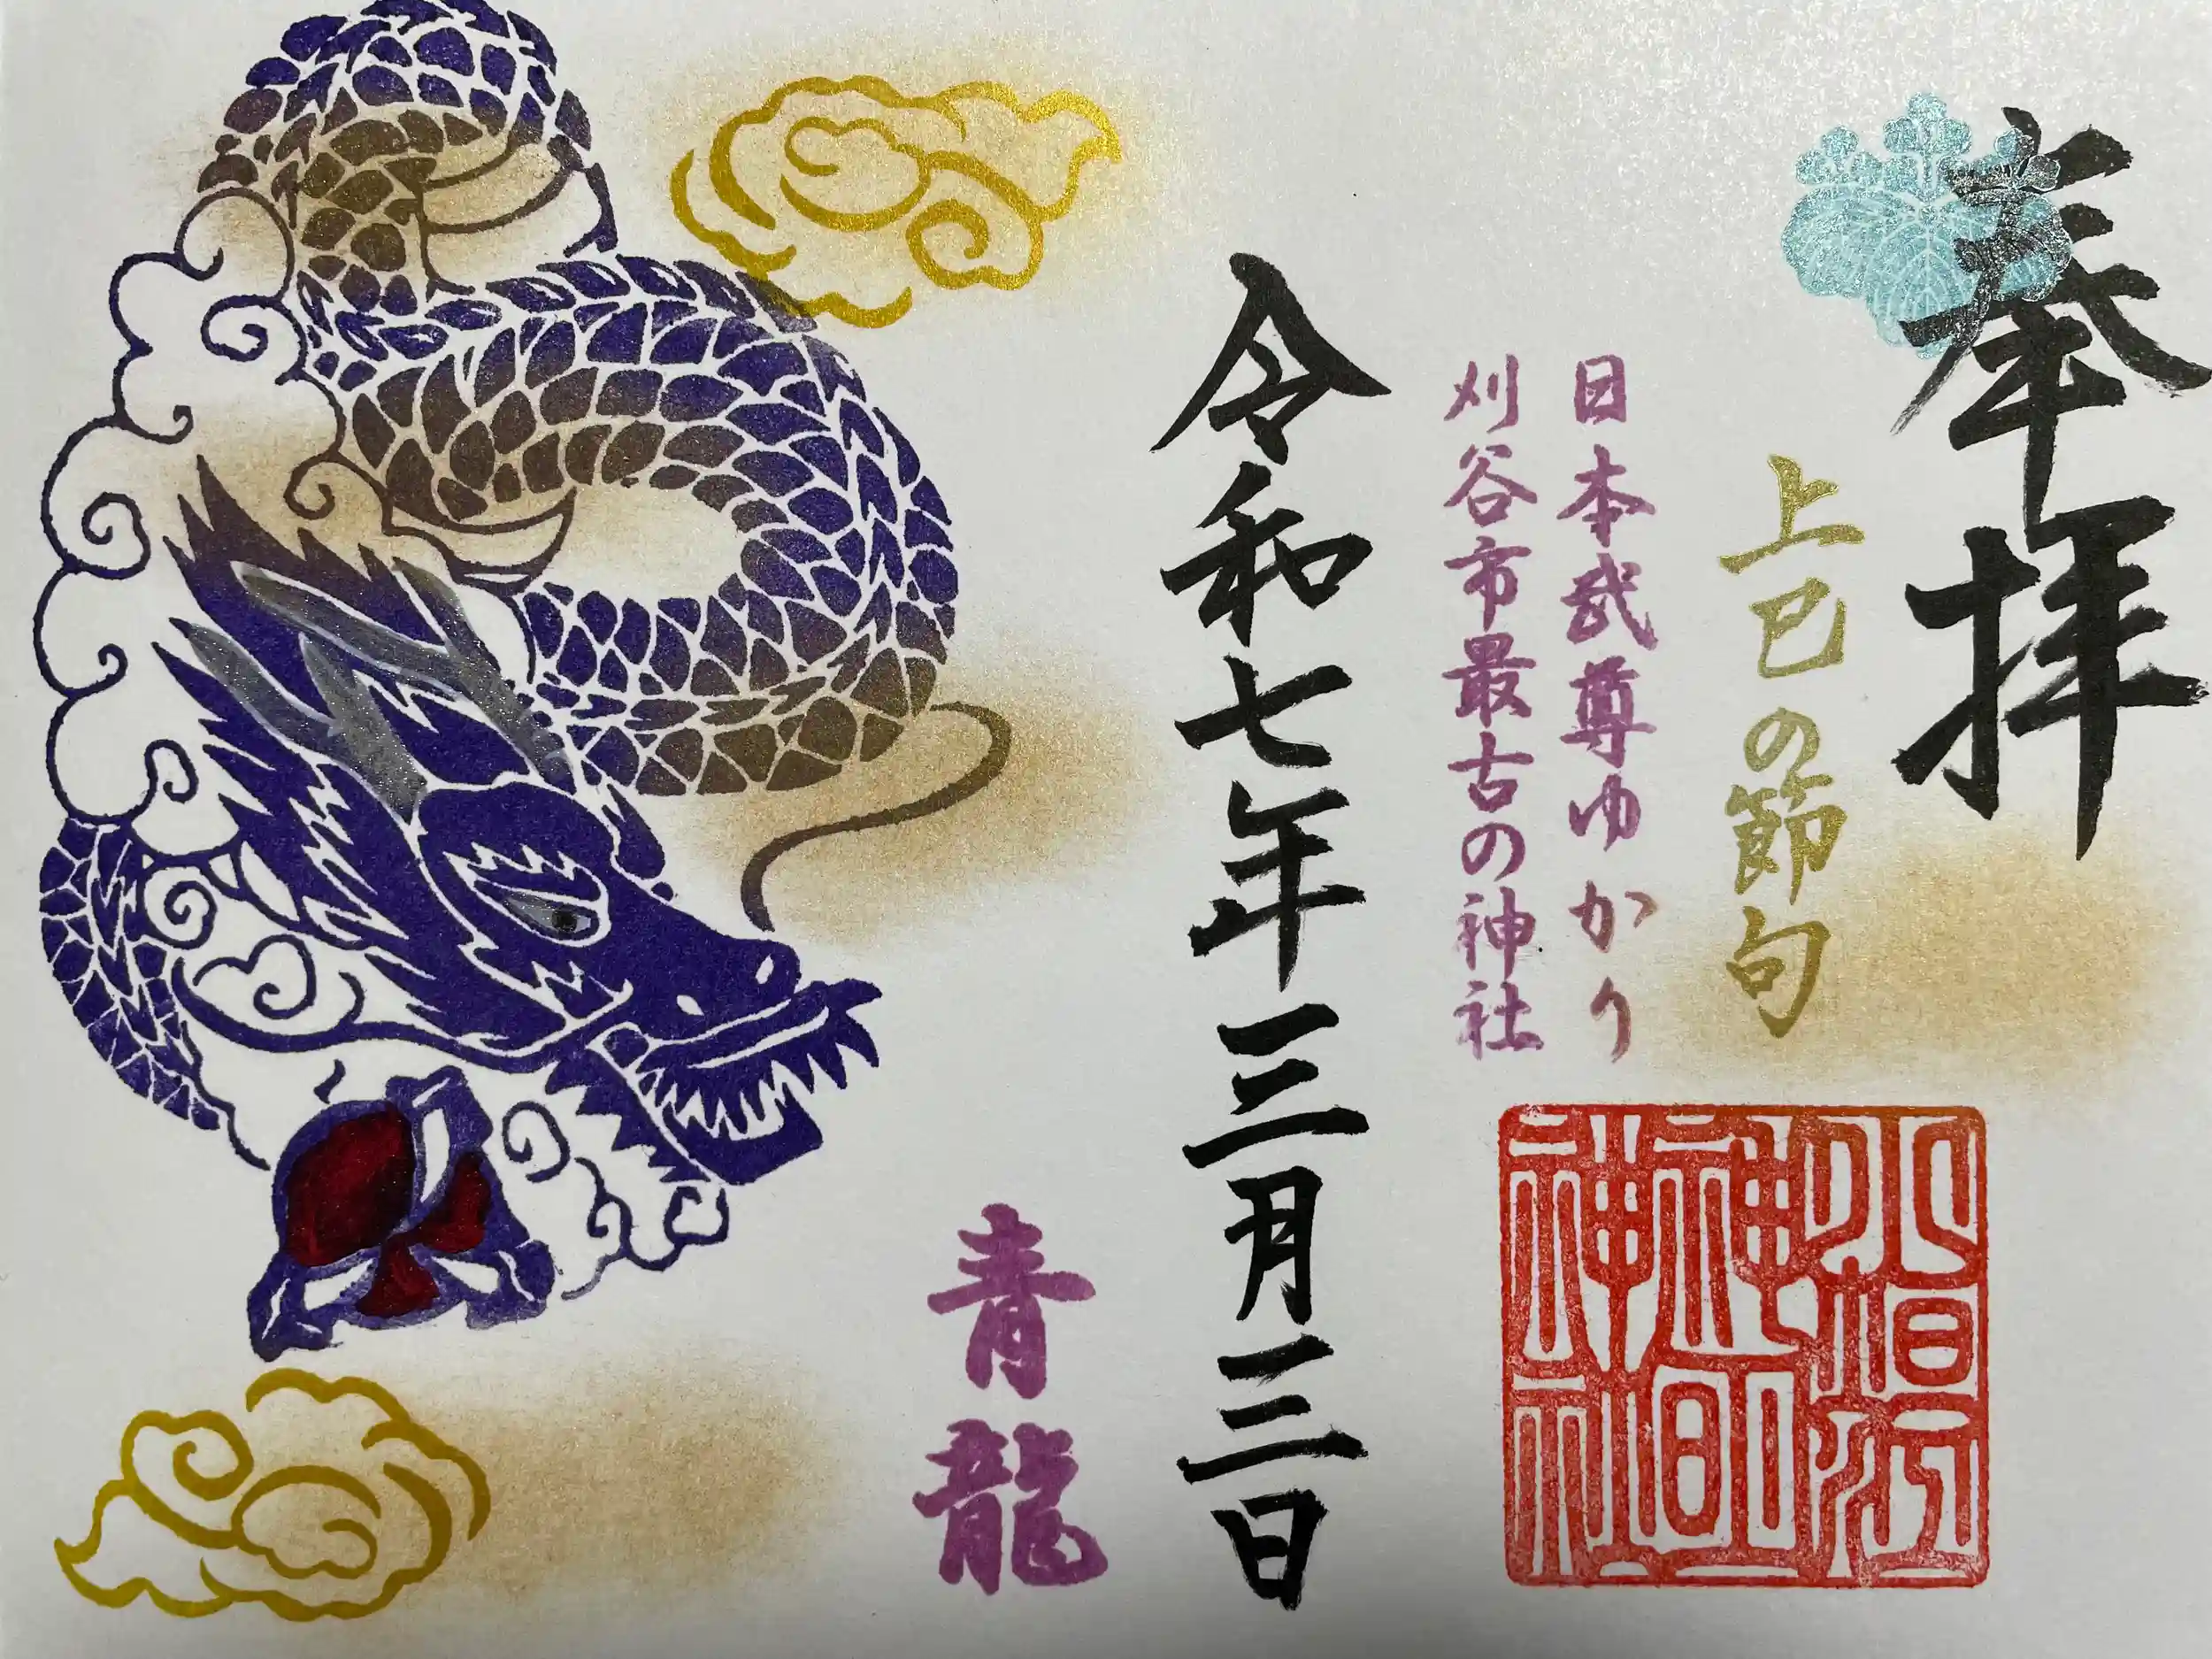 奉拝
上巳の節句
日本武尊ゆかり
刈谷市最古の神社
令和七年三月三日
青龍